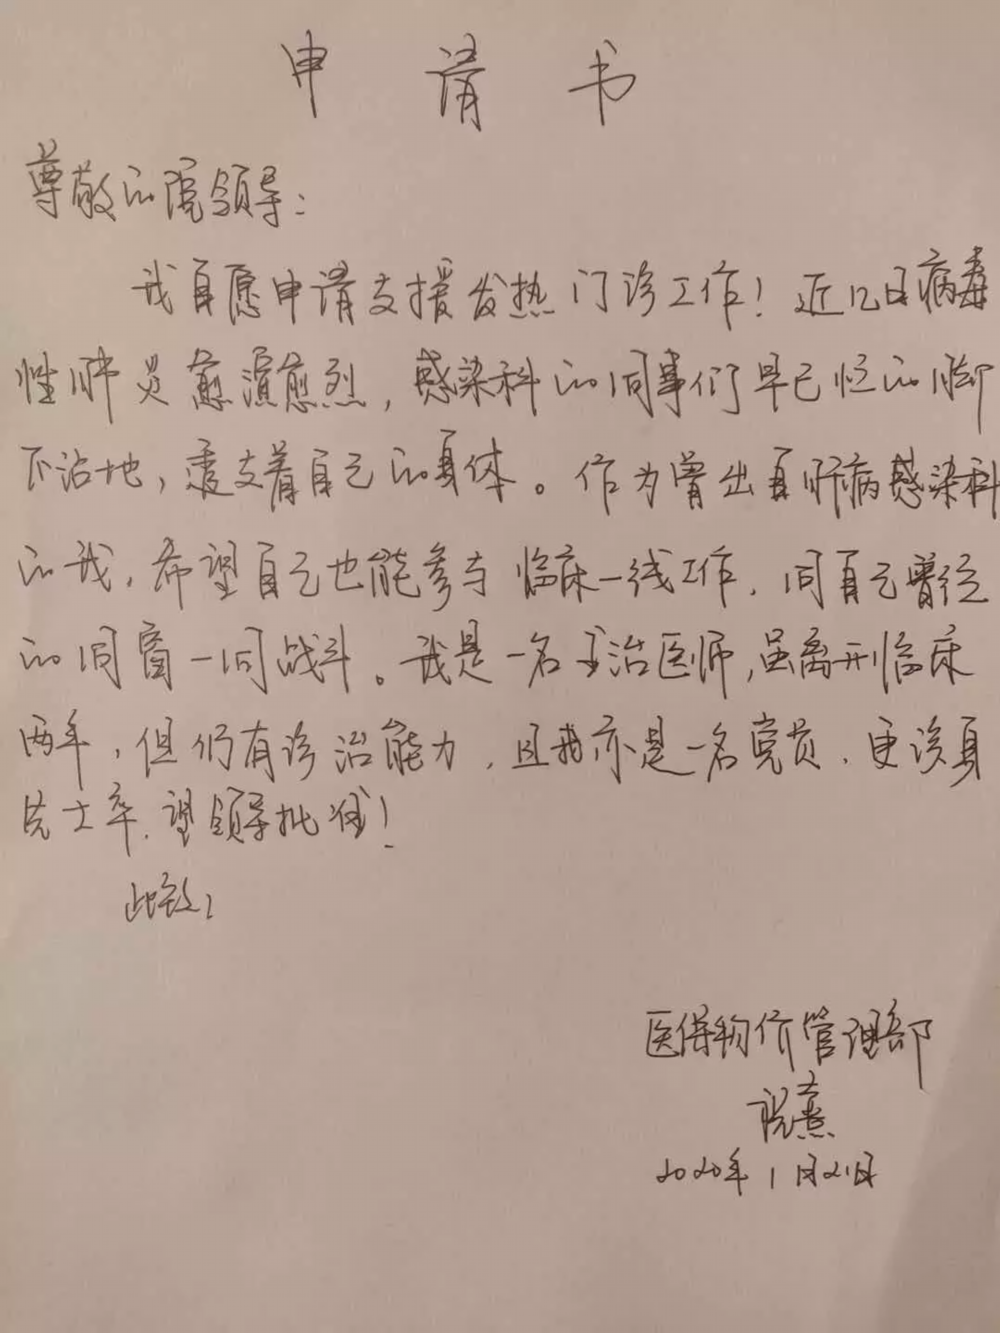 申请书
尊敬的院领导:
我自愿申请支援发热门诊工作!近几日病毒
性肺炎愈演愈烈,感染科的同事们早已忙的脚
不沾地,透支着自己的身体。作为曾出自肝病感染科
的我,希望自己也能参与临床一线工作,同自己曾经
的同窗一同战斗。我是一名主治医师,虽离开临床
两年,但仍有诊治能力,且我亦是一名党员,更该身
先士卒,望领导批准!
此致,
医保物价管理部
祝熹
2020年1月21日